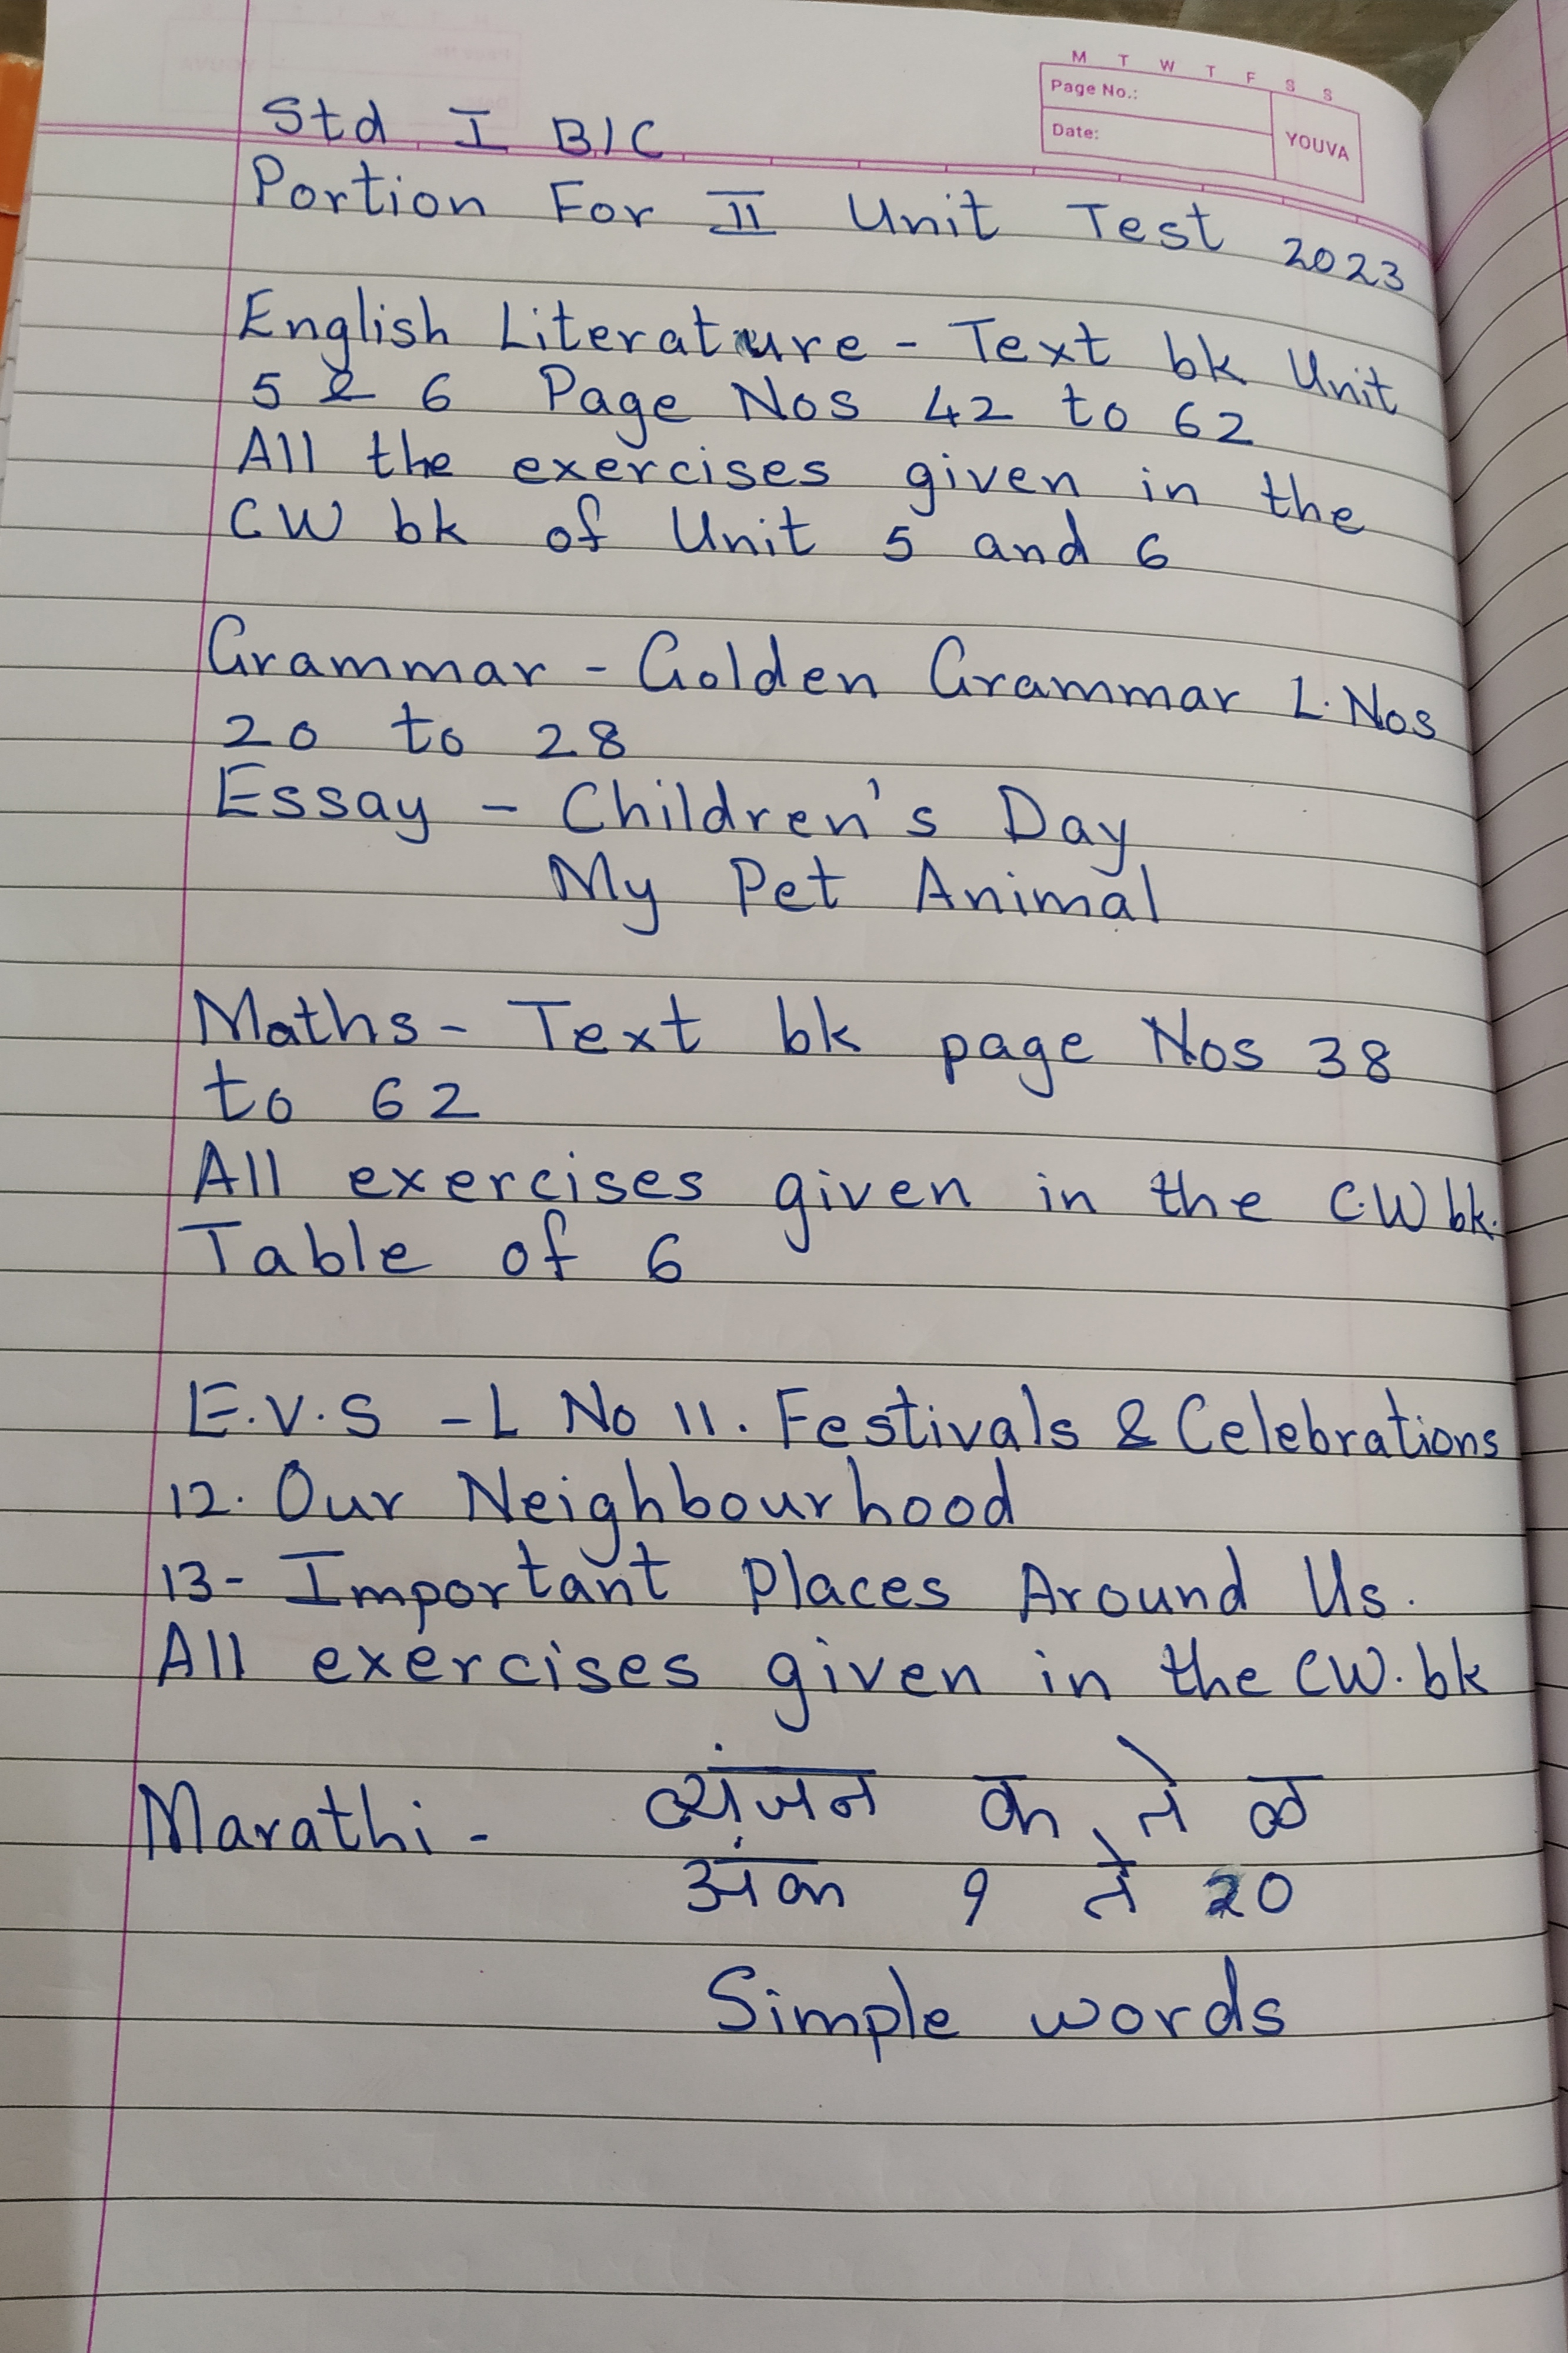 M T W T F S S
Page No.:
Date:
YOUVA
Std I B/C
Portion For II Unit Test 2023
English Literature - Text bk Unit
5 & 6 Page Nos 42 to 62
All the exercises given in the
CW bk of Unit 5 and 6
Grammar - Golden Grammar L. Nos
20 to 28
Essay - Children's Day
My Pet Animal
Maths - Text bk page Nos 38
to 62
All exercises given in the C.W bk.
Table of 6
E.V.S - L No 11. Festivals & Celebrations
12. Our Neighbourhood
13- Important Places Around Us.
All exercises given in the CW. bk
Marathi - व्यंजन क ते ळ
अंक १ ते २०
Simple words